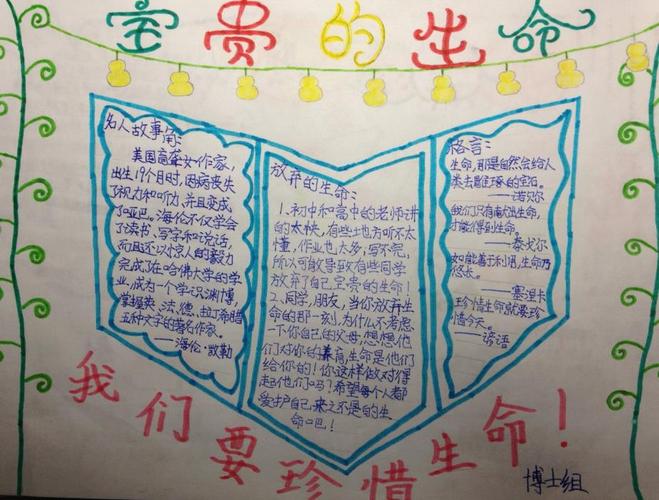 宝贵的生命
名人故事角:
美国盲聋女作家,
出生19个月时,因病丧失
了视力和听力,并且变成
了哑巴。海伦不仅学会
了读书、写字和说话,
而且还以惊人的毅力
完成了在哈佛大学的学
业,成为一个学识渊博,
掌握英、法、德、拉丁、希腊
五种文字的著名作家。
——海伦·凯勒
放弃的生命:
1.初中和高中的老师讲
的太快,有些地方听不太
懂,作业也太多,写不完,
所以可能导致有些同学
放弃了自己宝贵的生命!
2、同学,朋友,当你放弃生
命的那一刻,为什么不考虑
一下你自己的父母,想想他
们对你的养育,生命是他们
给你的!你这样做对得
起他们吗?希望每个人都
爱护自己来之不易的生
命吧!
格言:
生命,那是自然会给人
类去雕琢的宝石。
——诺贝尔
我们只有献出生命,
才能得到生命。
——泰戈尔
如能善于利用,生命乃
悠长。
——塞涅卡
珍惜生命就要珍
惜今天。
——谚语
我们要珍惜生命!
博士组